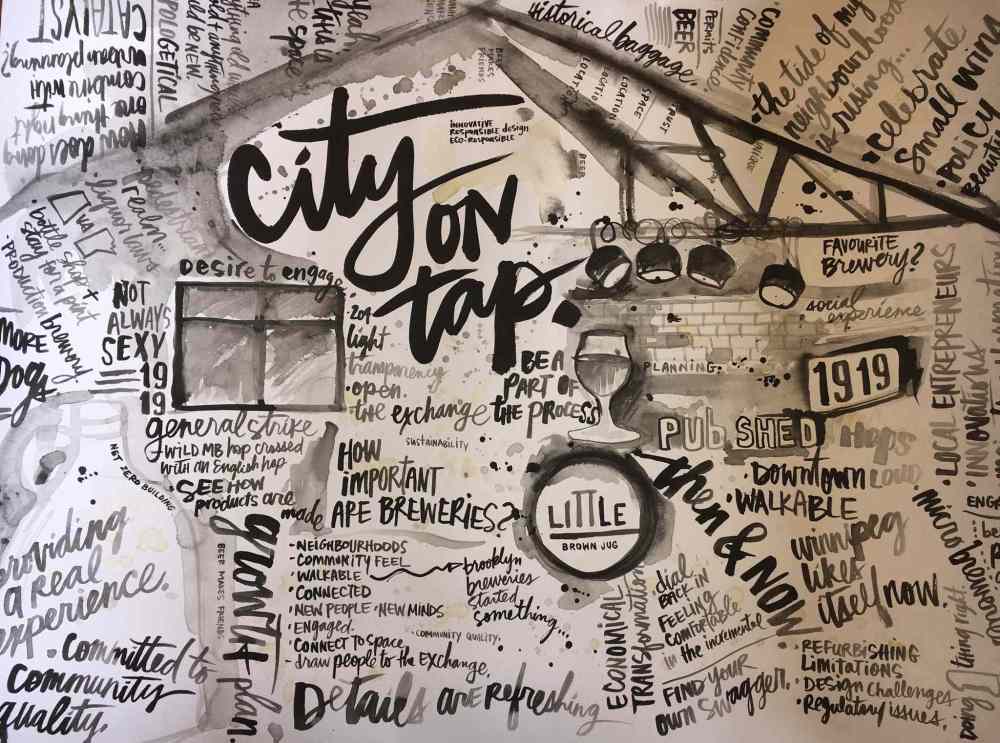 City
ON
tap.
INNOVATIVE
RESPONSIBLE design
ECO-RESPONSIBLE
CATALYST
urban planning?
combine with
one thing right
How does doing
Historical baggage
BEER
PERMITS
COMMUNITY
CONFIDENCE
the tide of my
neighbourhood
is rising...
celebrate
small wins
POLICY
LOCATION
LOCATION
LOCATION
SPACE
TRUST
BEER
MAKES
FRIENDS
BEER
liquor laws
realm...
VIA
bottle shop +
stay for a pint
PRODUCTION brewery
MORE
Dogs
NOT
ALWAYS
SEXY
19
19
Desire to engage
light
transparency
open.
the exchange
BE A
PART OF
the PROCESS
PLANNING.
FAVOURITE
Brewery?
social
experience
1919
PUB SHED
Hops
LOCAL ENTREPRENEURS
general strike
WILD MB hop crossed
with an English hop
SEE HOW
products are
made
NET ZERO BUILDING
SUSTAINABILITY
HOW
IMPORTANT
ARE BREWERIES?
NEIGHBOURHOODS
COMMUNITY FEEL
WALKABLE
CONNECTED
NEW PEOPLE • NEW MINDS
ENGAGED.
CONNECT TO SPACE
draw people to the EXCHANGE.
brooklyn
breweries
started
something...
COMMUNITY QUALITY.
LITTLE
BROWN JUG
DOWNTOWN
LOUD
WALKABLE
then & NOW
winnipeg
likes
itself now.
providing
a real
experience.
Committed to
Community
quality.
BEER MAKES FRIENDS.
growth plan.
Details are refreshing
ECONOMICAL
TRANSFORMATION
dial
BACK IN
FEELING
comfortable
in the incremental
FIND YOUR
own swagger.
REFURBISHING
LIMITATIONS
DESIGN challenges
Regulatory issues.
thing right